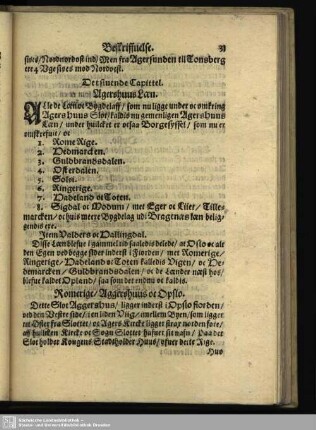 Beskriffuelse. 31
siøes / Nordnordost ind / Men fra Agersunden til Tonsberg
ere 4 Vgesiøes mod Nordvest.
Det siuende Capittel.
Agershuus Læn.
Alle de Lœns Bygdelaff / som nu ligge under oc omkring
Agershuus Slot / kaldis nu gemenligen Agershuus
Læn / under huilcket er ocsaa Borgesyssel / som nu er
omskrefuit / oc
1. Rome Rige.
2. Hedmarcken.
3. Guldbrandsdalen.
4. Osterdalen.
5. Soløe.
6. Ringerige.
7. Hadeland oc Toten.
8. Sigdal oc Modum / met Eger oc Lier / Tille-
marcken / oc huis meere Bygdelag udi Bragenæs læn belig-
gendis ere.
Item Valders oc Hallingdal.
Disse Landskaff / gammel tid saaledis delede / at Opslo oc alt
den Egen ved begge sider inderst i Fiorden / met Romerige /
Ringerige / Hadeland oc Toten kalledis Vigen / oc He-
demarcken / Guldbrandsdalen / oc de Lænder næst hos /
blefue kaldet Opland / saa som det endnu oc kaldis.
Romerige / Aggershuus oc Opslo.
Dette Slot Aggershuus / ligger inderst i Opslo fiorden /
ved den Vestre side / i en liden Viig / imellem Byen / som ligger
en Øster fra Slottet / oc Agers Kircke ligger strax norden fore /
aff huilcken Kircke oc Sogn Slottet hafuer sit nafn / Paa det
Slot holder Kongens Stadtholder Huus / ofuer heele Rige.
Huo